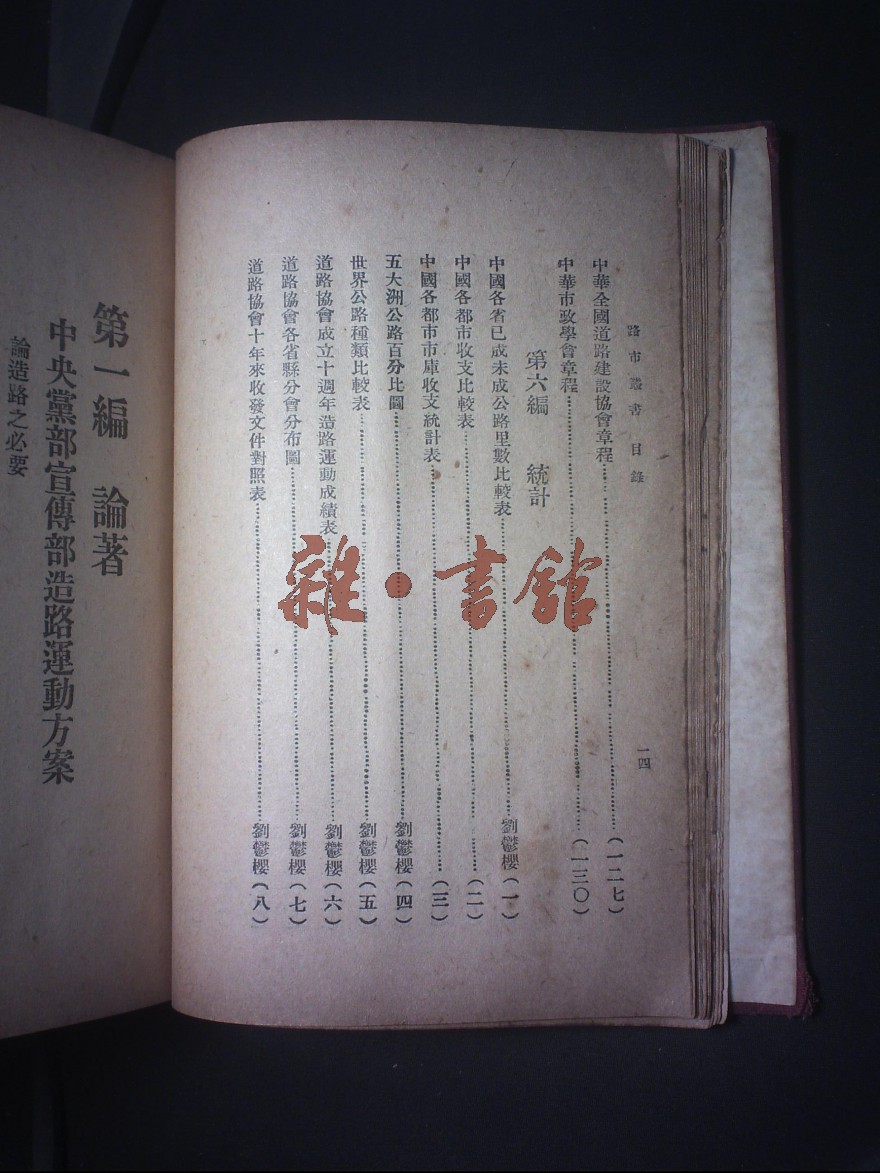 路市叢書 目錄
一四
中華全國道路建設協會章程……(一二七)
中華市政學會章程……(一三〇)
第六編 統計
中國各省已成未成公路里數比較表……劉鬱櫻(一)
中國各都市收支比較表……(二)
中國各都市市庫收支統計表……(三)
五大洲公路百分比圖……劉鬱櫻(四)
世界公路種類比較表……劉鬱櫻(五)
道路協會成立十週年造路運動成績表……劉鬱櫻(六)
道路協會各省縣分會分布圖……劉鬱櫻(七)
道路協會十年來收發文件對照表……劉鬱櫻(八)
第一編 論著
中央黨部宣傳部造路運動方案
論造路之必要
雜·書館